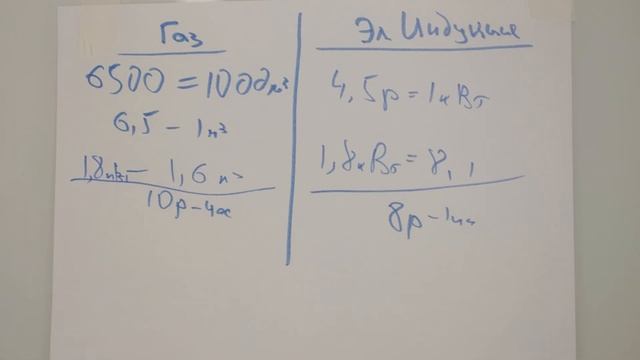 Газ
6500 = 1000м³
6,5 - 1м³
1,8кВт - 1,6м³
10р - час
Эл Индукция
4,5р = 1кВт
1,8кВт = 8,1
8р - 1ч